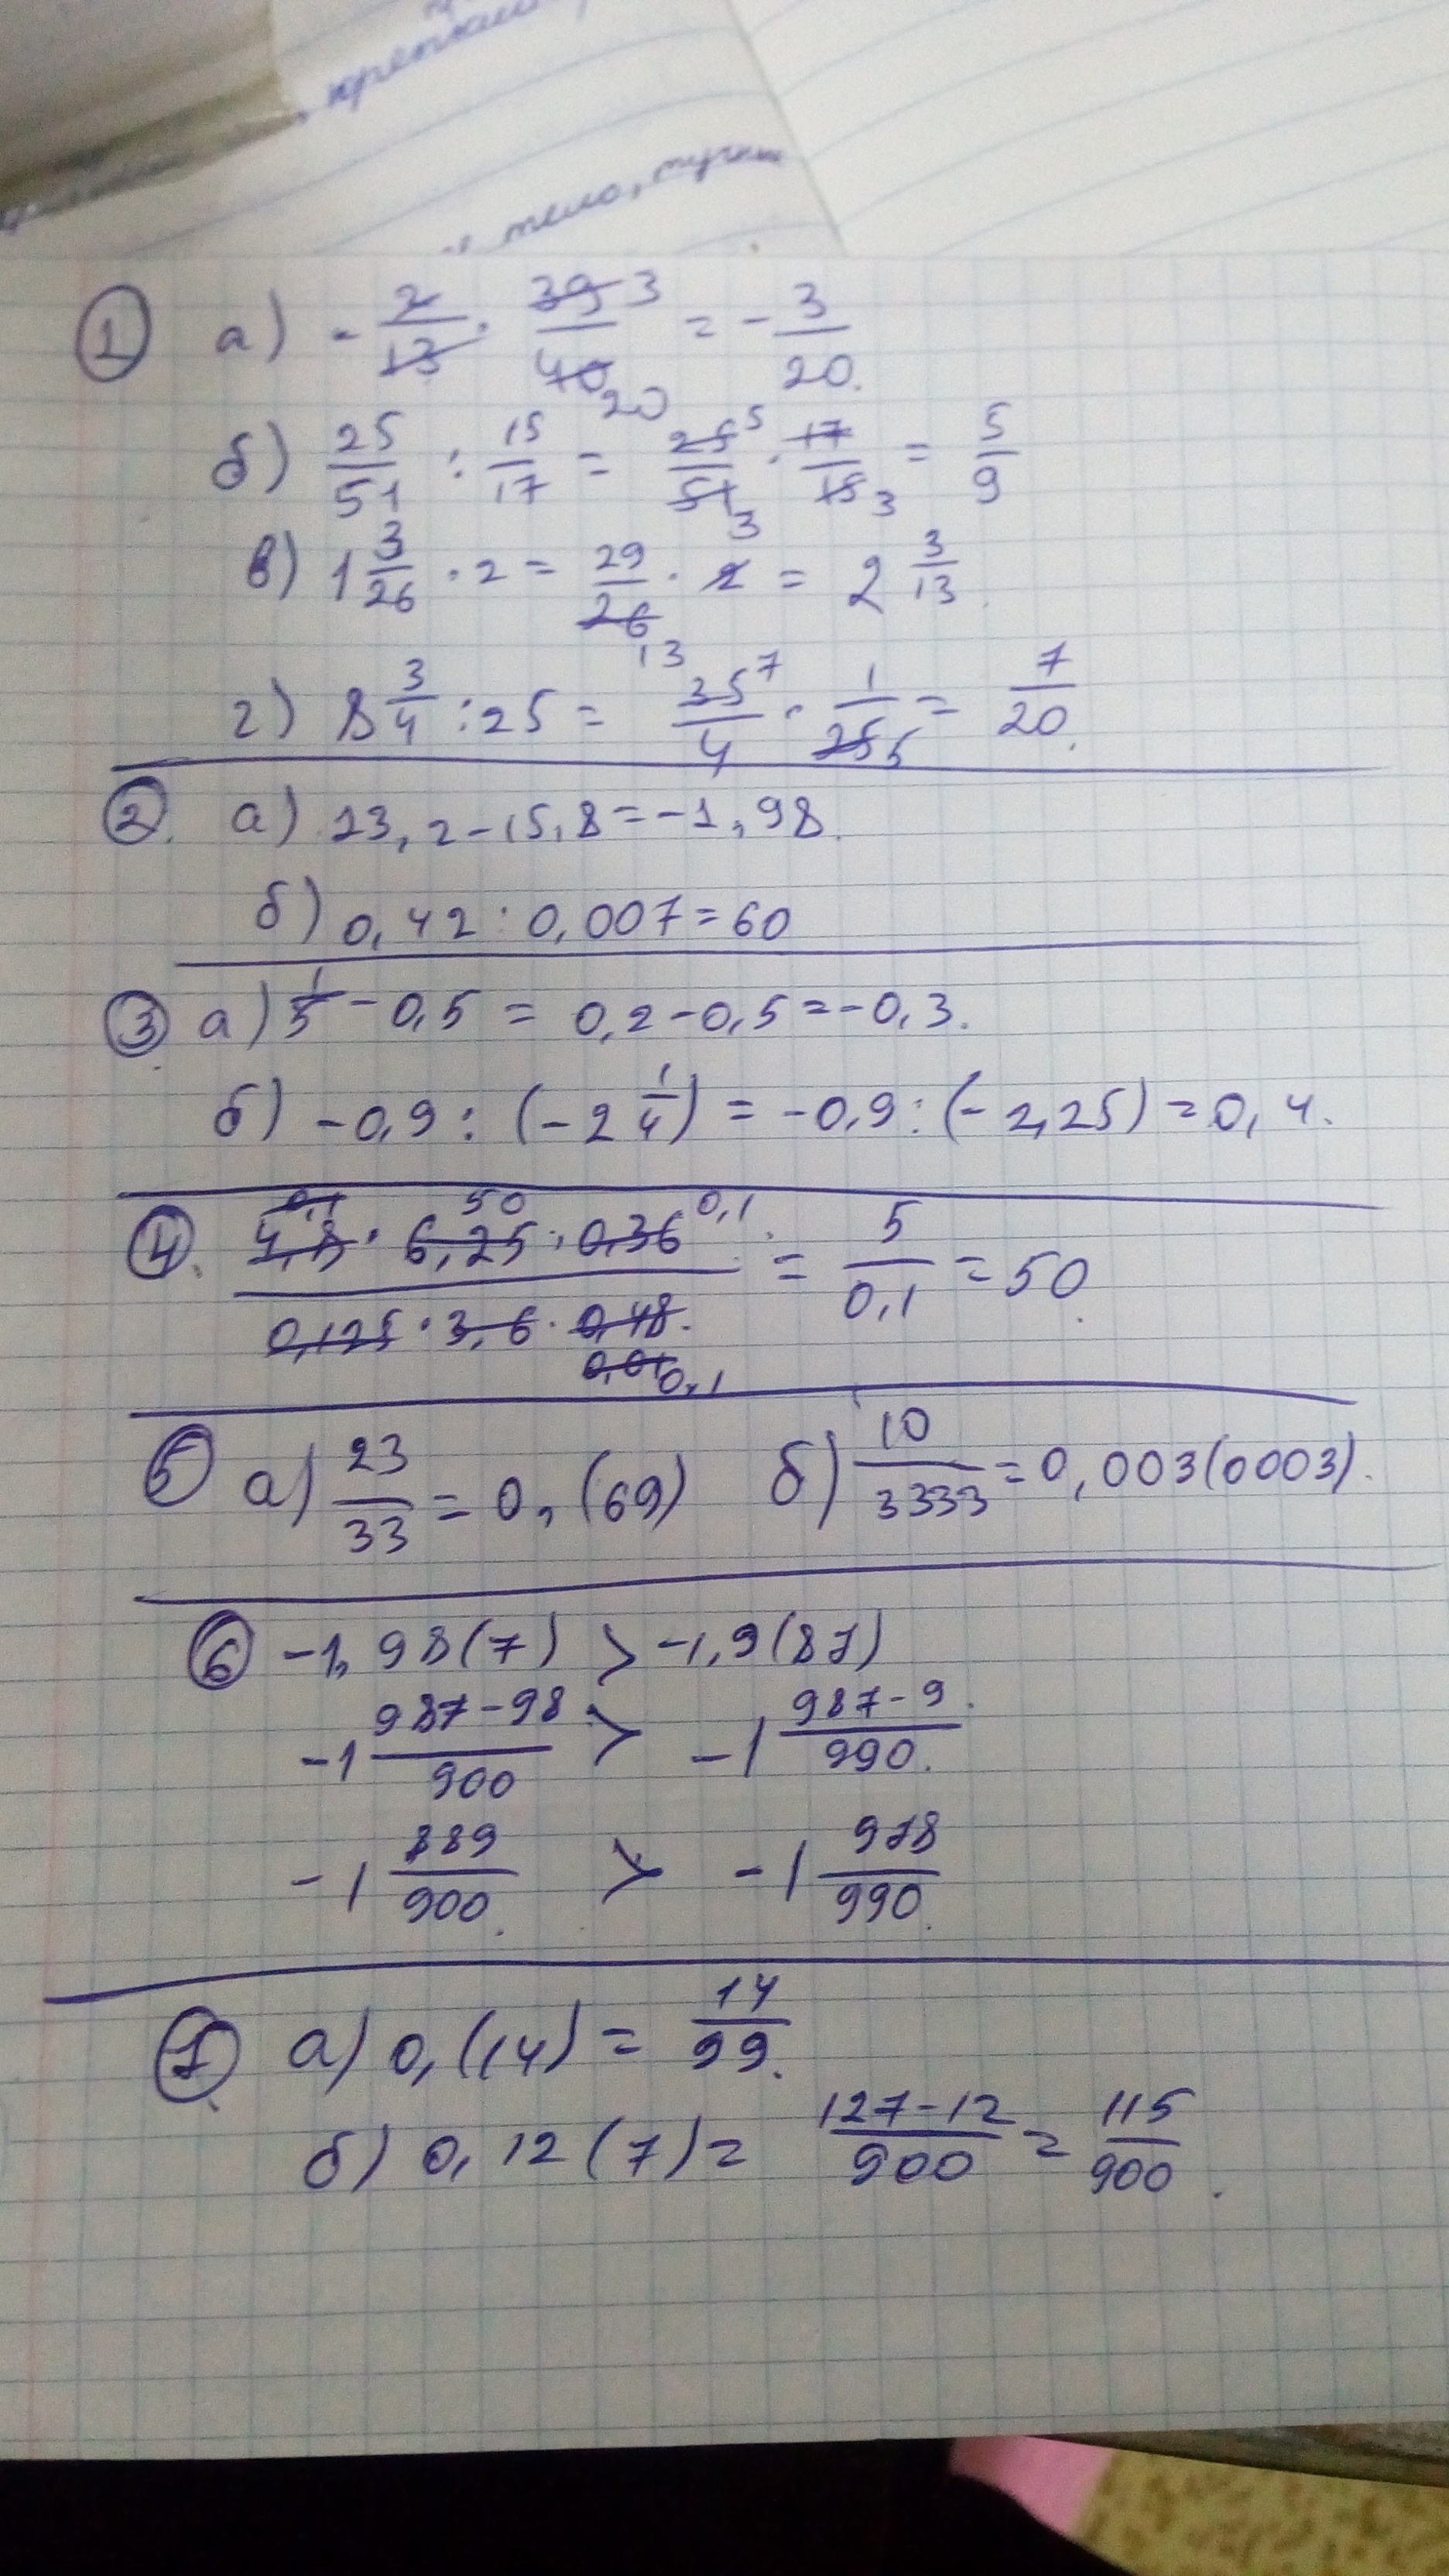 крепкий
тело, тучки
① а) -2/13 · 39/40 3 20 = -3/20.
б) 25/51 : 15/17 = 25/51 5 3 · 17/15 3 = 5/9
в) 1 3/26 · 2 = 29/26 13 · 2 = 2 3/13.
г) 8 3/4 : 25 = 35/4 7 · 1/25 5 = 7/20.
②. а) 23,2-15,8=-1,98.
б) 0,42 : 0,007=60
③ а) 1/5 - 0,5 = 0,2-0,5=-0,3.
б) -0,9 : (-2 1/4) = -0,9 : (-2,25) = 0,4.
0,1 50 0,1
④. 4,8 · 6,25 · 0,36 / 0,125 · 3,6 · 0,48. = 5/0,1 = 50.
0,01 0,1
⑤ а) 23/33 = 0,(69) б) 10/3333 = 0,003(0003).
⑥ -1,98(7) > -1,9(87)
-1 987-98/900 > -1 987-9/990.
-1 889/900. > -1 978/990.
⑦. а) 0,(14) = 14/99.
б) 0,12(7) = 127-12/900 = 115/900.